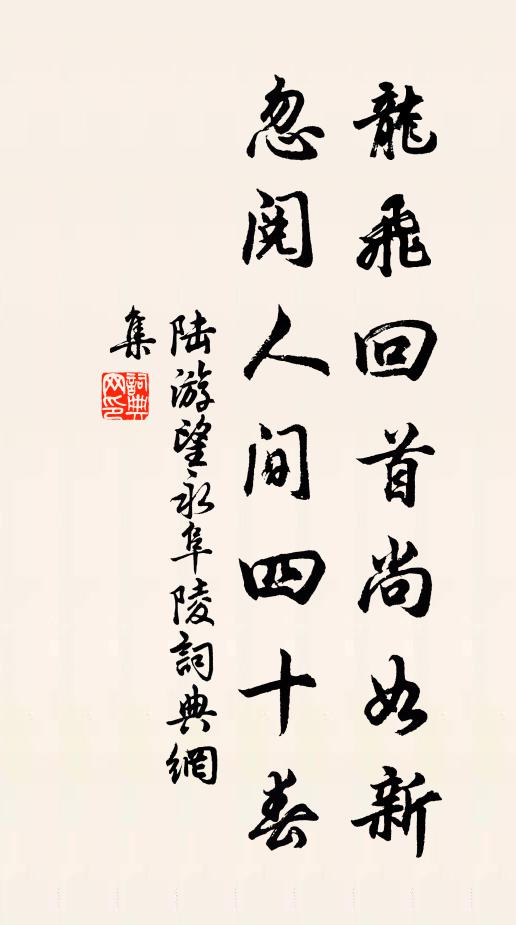 龍飛回首尚如新
忽閱人間四十春
陆游望永阜陵詞典網
集
詞典网印